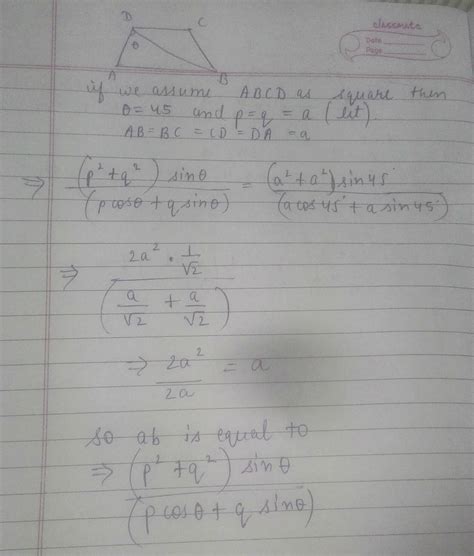 D C
classmate
Date
Page
θ
A B
if we assume ABCD as square then
θ = 45 and p = q = a (let)
AB = BC = CD = DA = a
⇒ (p² + q²) sinθ / (p cosθ + q sinθ) = (a² + a²) sin 45° / (a cos 45° + a sin 45°)
⇒ 2a² · 1/√2 / (a/√2 + a/√2)
⇒ 2a² / 2a = a
so ab is equal to
⇒ (p² + q²) sinθ
(p cosθ + q sinθ)